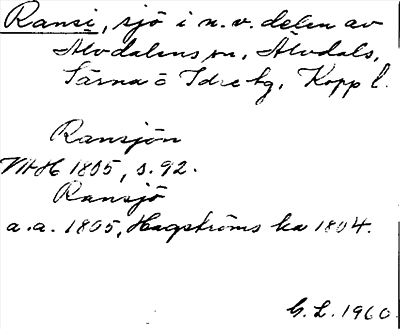 Ransi, sjö i n.v. delen av
Älvdalens sn, Älvdals,
Särna o Idre tg, Kopp l.
Ransjön
VAH 1805, s. 92.
Ransjö
a.a. 1805, Hagströms ka 1804.
G.L. 1960